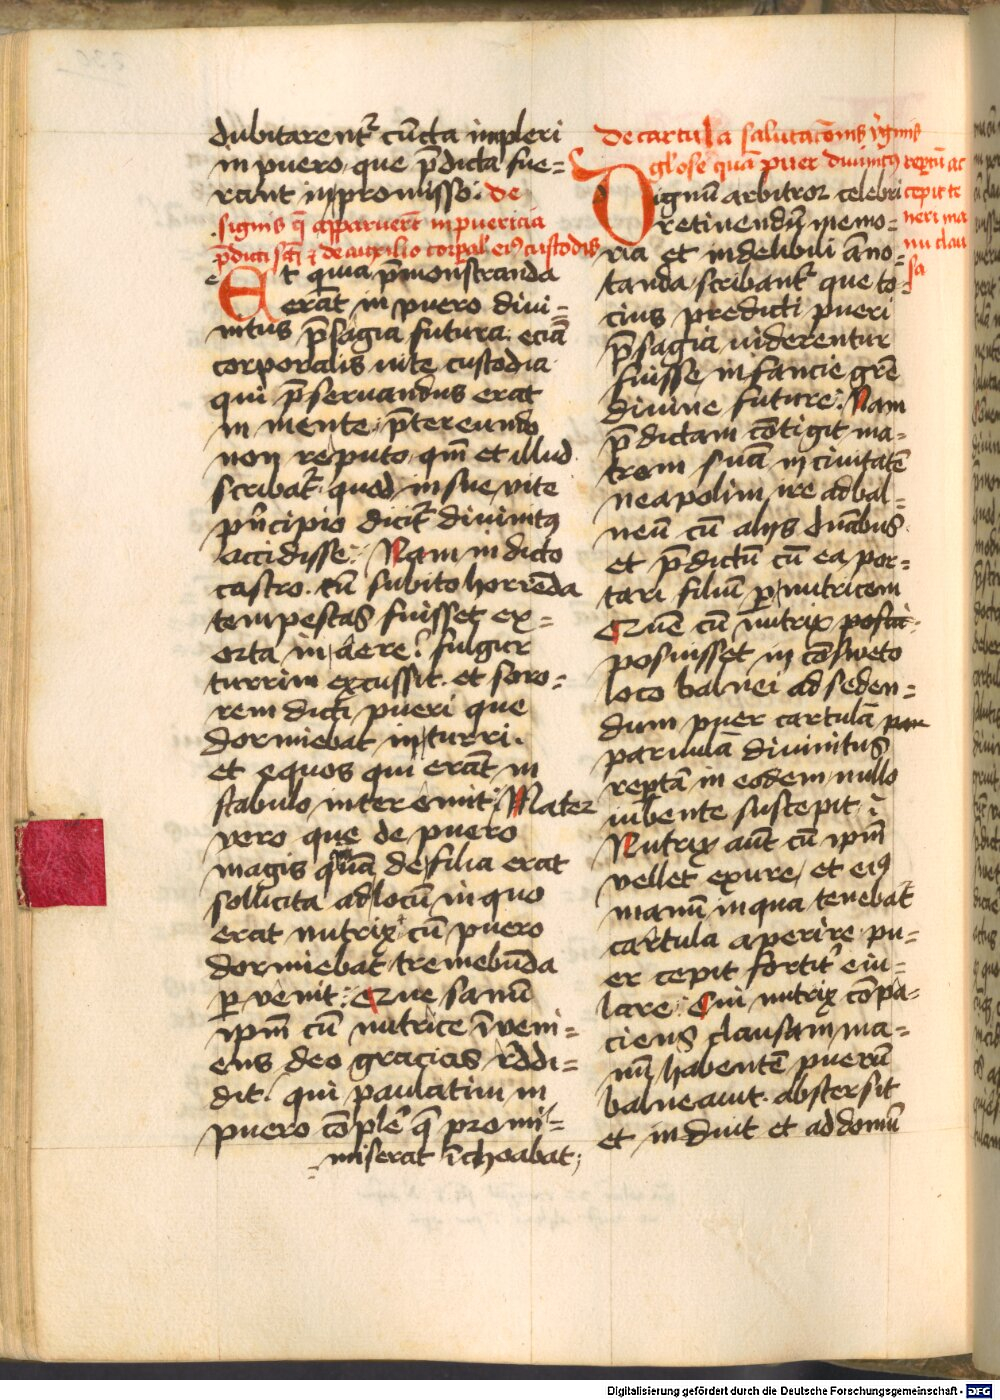 dubitarent᷑ cūcta impleri
in puero que p̄dicta fue=
rant in promisso. de
signis q̄ apparuerūt in puericia
p̄dicti scī ⁊ de auxilio corpal' eiꝯ custodis
Et quia p̄monstranda
erāt in puero divi=
nitus p̄sagia futura. eciā
corporalis vite custodia
qui p̄servandus erat
in mente p̄tereundo
non reputo, qm̄ et illud
scribat᷑. quod in sue vite
pn̄cipio dicit᷑ divinitꝯ
accidisse. Nam in dicto
castro. cū subito horrēda
tempestas fuisset ex=
orta in aere. fulgur
turrim excussit. et soro=
rem dicti pueri que
dormiebat in turri.
et equos qui erāt in
stabulo interemit. Mater
vero que de puero
magis quā de filia erat
sollicita ad locū in quo
erat nutrix cū puero
dormiebat tremebūda
ꝑvenit. Que sanū
ipm̄ cū nutrice īveni=
ens deo gracias rēddi=
dit. qui paulatim in
puero cōplē q̄ promi=
=miserat īchoabat;
de cartula salutacōnis v̓ginis
glose quā puer divinitꝯ reptā ac
cepit te
neri ma
nu clau
sa
Dignū arbitror celebri
retinendū memo=
ria et indelibili āno=
tanda scribant᷑ que to=
cius predicti pueri
p̄sagia viderentur
fuisse infancie grē
divine future. Nam
p̄dictam cōtigit ma=
trem suā in civitatē
neapolim ire ad bal=
neū cū aliis dn̄abus
et p̄dictū cū ea por=
tari filiū ꝑ nutricem
Quē cū nutrix
posuisset in cōsweto
loco balnei ad seden=
dum puer cartulā
parvulā divinitus
reptā in eodem nullo
iubente suscepit
Nutrix aūt cū ipm̄
vellet exuere, et eiꝯ
manū in qua tenebat᷑
cartula aperire pu=
er cepit fortit᷑ eiu=
lare. Cui nutrix cōpa=
ciens clausam ma=
nū habentē puerū
balneavit. abstersit
et induit et ad domū
Digitalisierung gefördert durch die Deutsche Forschungsgemeinschaft - DFG